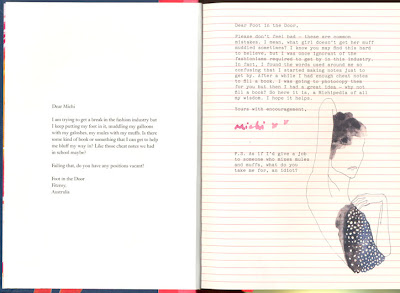 Dear Michi
I am trying to get a break in the fashion industry but
I keep putting my foot in it, muddling my galloons
with my galoshes, my mules with my muffs. Is there
some kind of book or something that I can get to help
me bluff my way in? Like those cheat notes we had
in school maybe?
Failing that, do you have any positions vacant?
Foot in the Door
Fitzroy,
Australia
Dear Foot in the Door,
Please don't feel bad - these are common
mistakes. I mean, what girl doesn't get her muff
muddled sometimes? I know you may find this hard
to believe, but I was once ignorant of the
fashionese required to get by in this industry.
In fact, I found the words used around me so
confusing that I started making notes just to
get by. After a while I had enough cheat notes
to fill a book. I was going to photocopy them
for you but then I had a great idea - why not
fill a book! So here it is, a Michipedia of all
my wisdom. I hope it helps.
Yours with encouragement,
michi
P.S. As if I'd give a job
to someone who mixes mules
and muffs, what do you
take me for, an idiot?